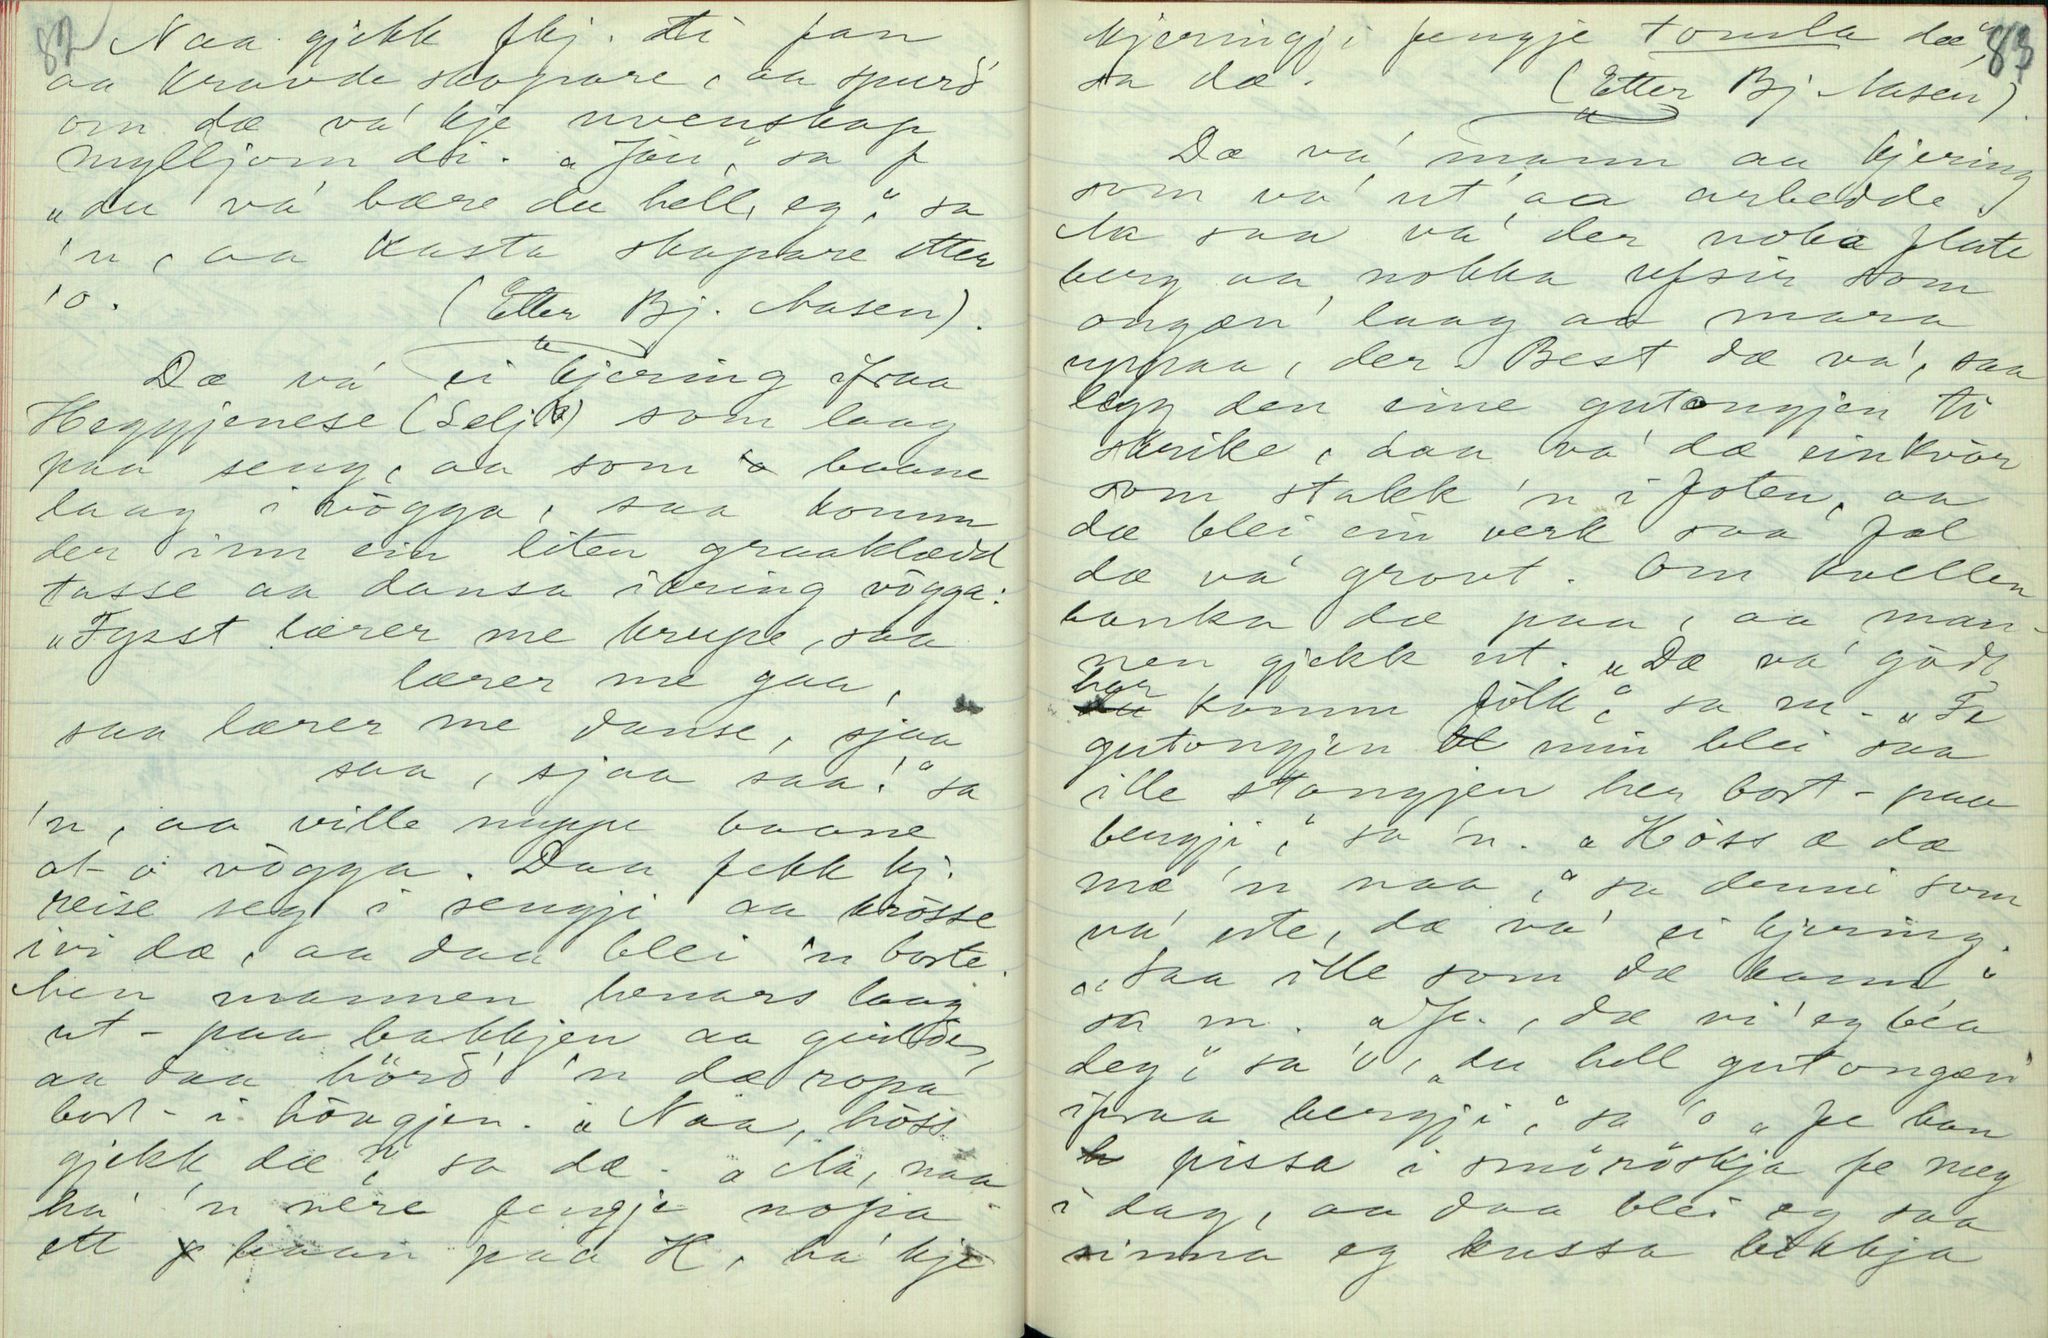 82
Naa gjekk fkj. ti fan
aa kravde skopare, aa spurd'
om dæ va' kje uvenskap
mylljom dei. „Jau," sa f
„du va' bære du hell, eg," sa
'n, aa kasta skapare etter
'o. (Etter Bj. Aasen).
Dæ va' ei kjering ifraa
Heggjenese (Selj.) som laag
paa seng, aa som baane
laag i vögga, saa komm
der inn ein liten graaklædd
tasse aa dansa ikring vögga:
„Fysst lærer me krupe, saa
lærer me gaa,
saa lærer me danse, sjaa
saa, sjaa saa!" sa
'n, aa ville nuppe baane
ot- o vögga. Daa fekk kj.
reise seg i sengji aa krösse
ivi dæ, aa daa blei 'n borte.
Men mannen henars laag
ut- paa bakkjen aa
aa daa hörd' 'n dæ ropa
bort- i haugjen. „Naa, höss
gjekk dæ", sa dæ. „Aa, naa
ha' 'n nére fengje nopa
ett baan paa H, ha' kje
83
kjeringji fengje tomla dæ,"
sa dæ. (Etter Bj. Aasen).
Dæ va' mann aa kjering
som va' ut aa arbeidde.
Aa saa va' der noka flate
berg aa nokka ufsir som
ongæn' laag aa mara
uppaa, der. Best dæ va', saa
legg den eine gutongjen ti
skrike, daa va' dæ einkvor
som stakk 'n i foten, aa
dæ blei ein verk saa fæl
dæ va' grovt. Om kvellen
banka dæ paa, aa man-
nen gjekk ut. „Dæ va' godt
her komm folk," sa m. „Fe
gutongjen min blei saa
ille stongjen her bort- paa
bergji," sa 'n. „Höss æ dæ
mæ 'n naa," sa denni som
va' ute, dæ va' ei kjering.
„Saa ille som dæ kann"
sa m. „Ja, dæ vi' eg béa
deg," sa 'o, „du hell gutongæn'
ifraa bergji," sa 'o „Fe han
pissa i smöröskja fe meg
i dag, aa daa blei eg saa
sinna eg kussa bikkja